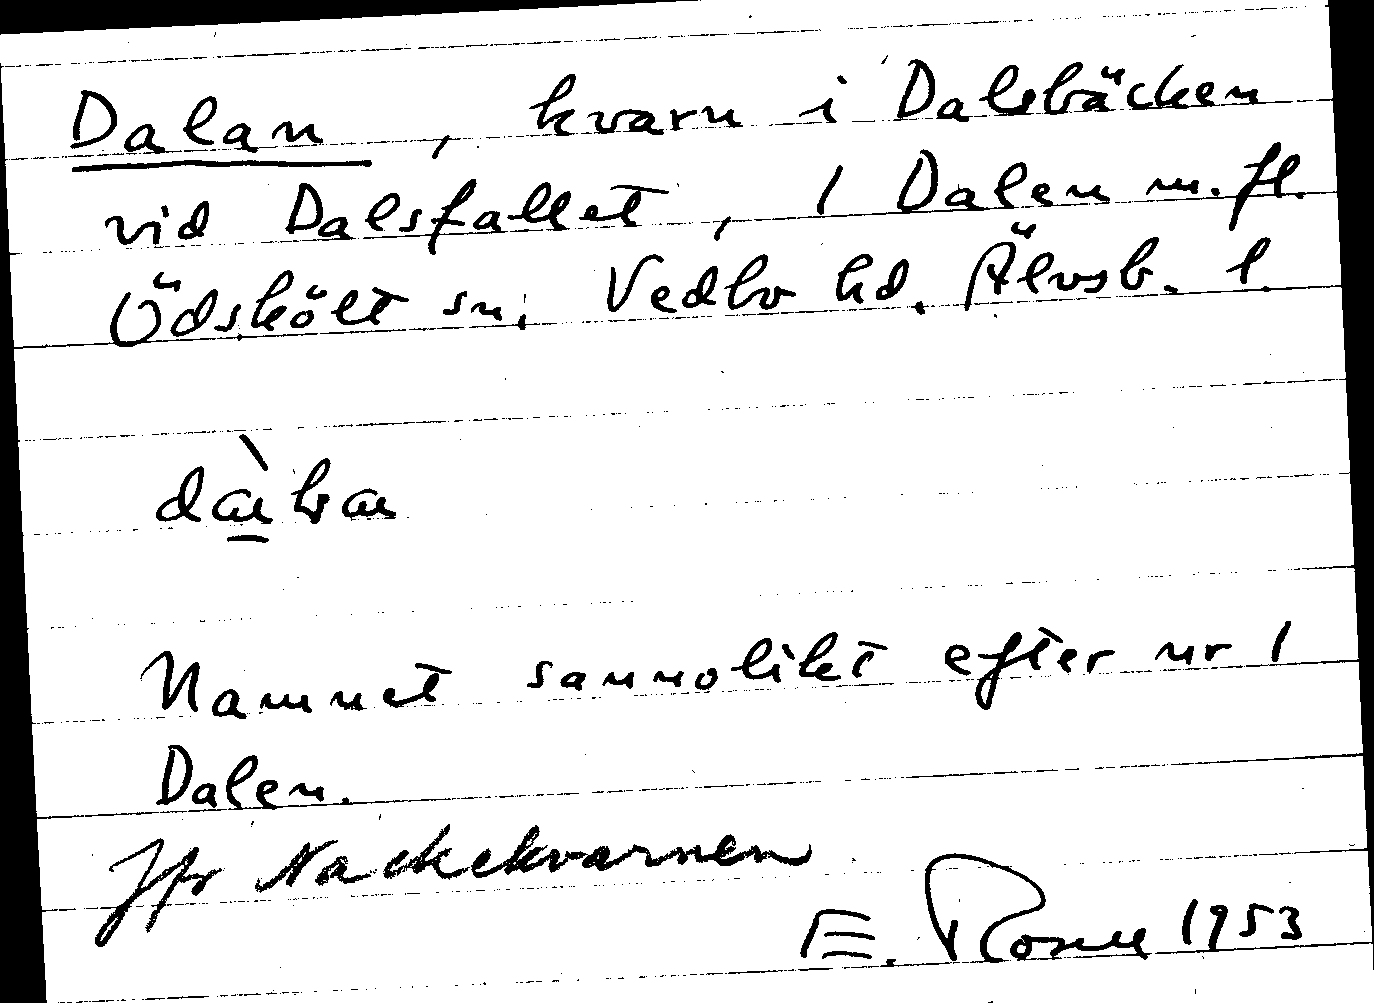 Dalan, kvarn i Dalsbäcken
vid Dalsfallet, 1 Dalen m.fl.
Ödskölt sn, Vedbo hd. Älvsb. l.
Namnet sannolikt efter nr 1
Dalen.
Jfr Nackekvarnen
E. 1953